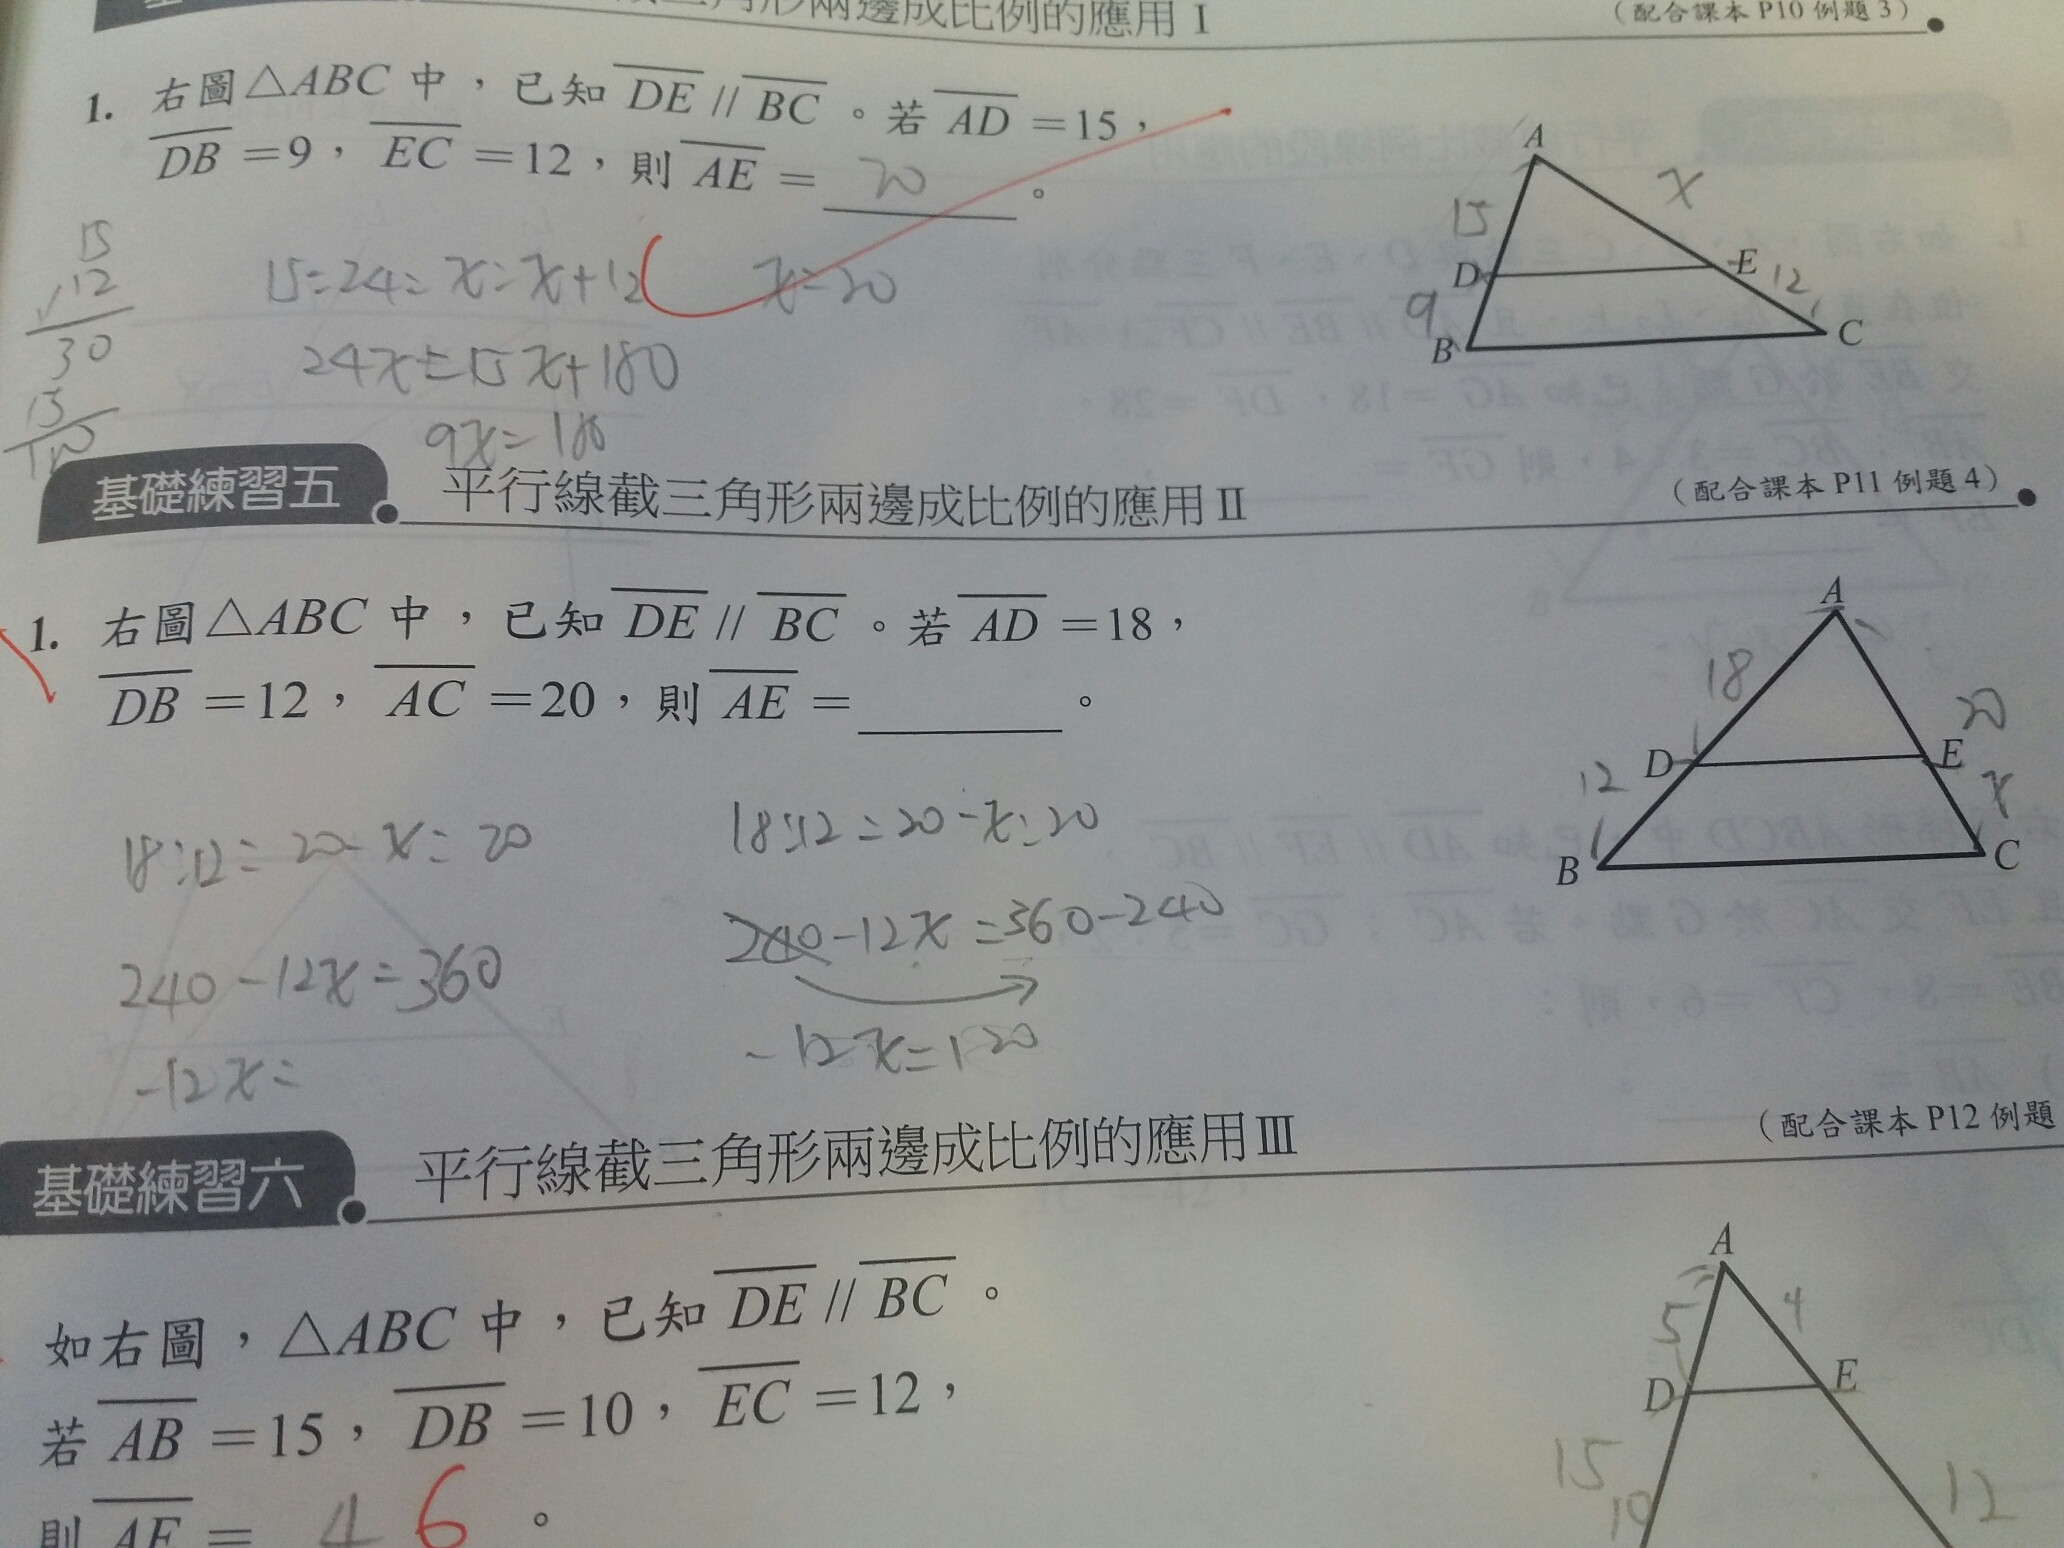 截三角形兩邊成比例的應用 I
(配合課本 P10 例題 3)
1. 右圖△ABC 中，已知 DE // BC 。若 AD =15，
DB =9， EC =12，則 AE = 20 。
15
12
30
15
15:24=x:x+12 x=20
24x=15x+180
9x=180
A
x
15
D
E
12
9
B
C
基礎練習五 平行線截三角形兩邊成比例的應用 II
(配合課本 P11 例題 4)
1. 右圖△ABC 中，已知 DE // BC 。若 AD =18，
DB =12， AC =20，則 AE = 。
A
18
20
D
E
12
x
B
C
18:12=20-x:20
240-12x=360
-12x=
18:12=20-x:20
240-12x=360-240
-12x=120
基礎練習六 平行線截三角形兩邊成比例的應用 III
(配合課本 P12 例題
如右圖，△ABC 中，已知 DE // BC 。
若 AB =15， DB =10， EC =12，
則 AE = 4 6 。
A
5
4
D
E
15
10
12